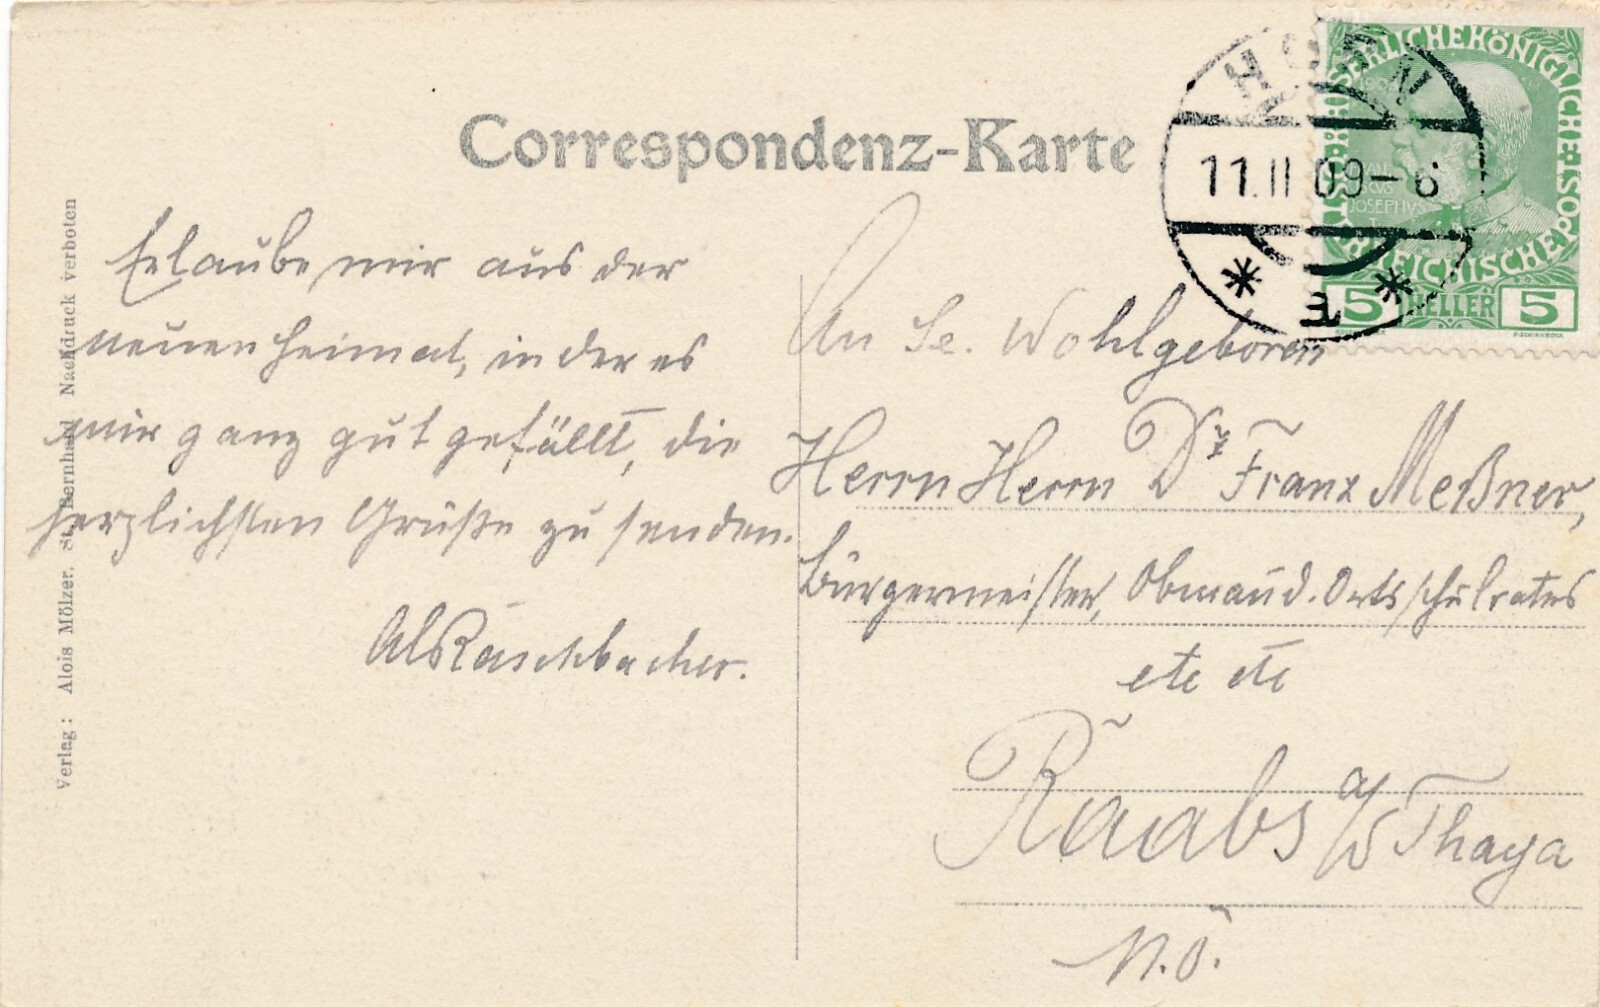 Correspondenz-Karte
HORN
11.II 09-6
KAISERLICHE KÖNIGLICHE ÖSTERREICHISCHE POST
JOSEPHVS
5 HELLER 5
Verlag: Alois Mölzer, St. Bernhard Nachdruck verboten
Erlaube mir aus der
neuen Heimat, in der es
mir ganz gut gefällt, die
herzlichsten Grüße zu senden.
Al Räuschbacher.
An Se. Wohlgeboren
Herrn Herrn Dr Franz Meßner,
Bürgermeister, Obmann d. Ortsschulrates
etc etc
Raabs a/d Thaya
N.Ö.